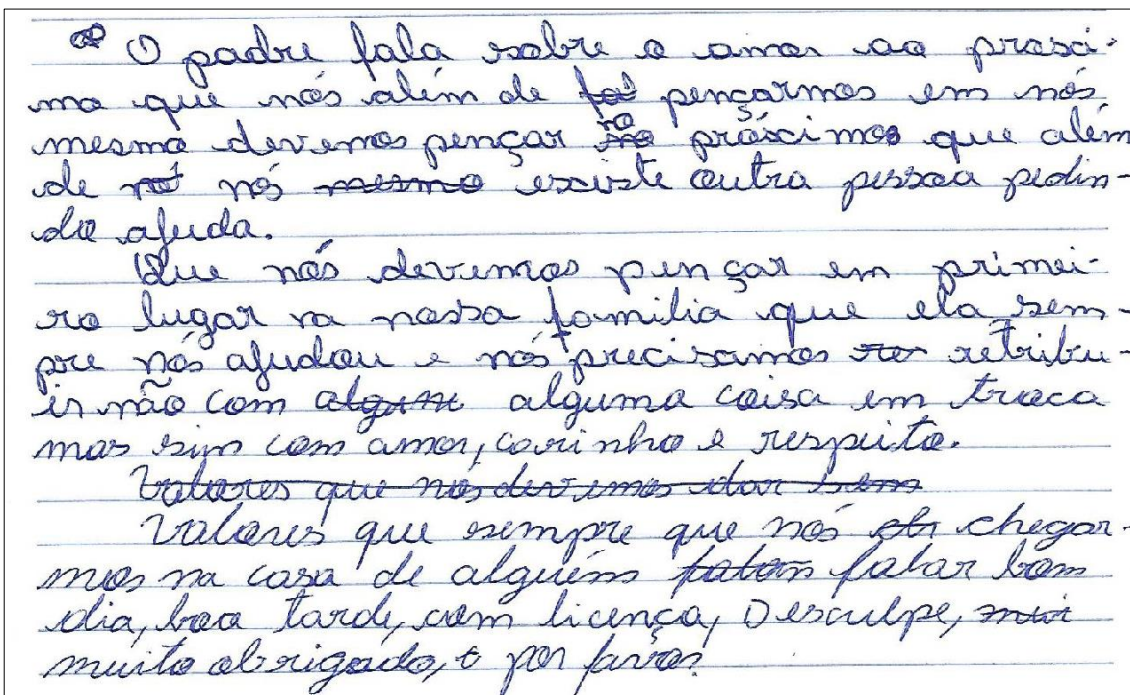 O padre fala sobre o amor ao prosci-
mo que nós além de pençarmos em nós
mesmo devemos pençar no próscimo que além
de nós mesmo existe outra pessoa pedin-
do ajuda.
Que nós devemos pençar em primei-
ro lugar na nossa família que ela sem-
pre nós ajudou e nós precisamos retribu-
ir não com algum alguma coisa em troca
mas sim com amor, carinho e respeito.
Valores que nós devemos dar bem
Valores que sempre que nós chegar-
mos na casa de alguém falar bom
dia, boa tarde, com licença, Desculpe,
muito obrigado, e por favor.